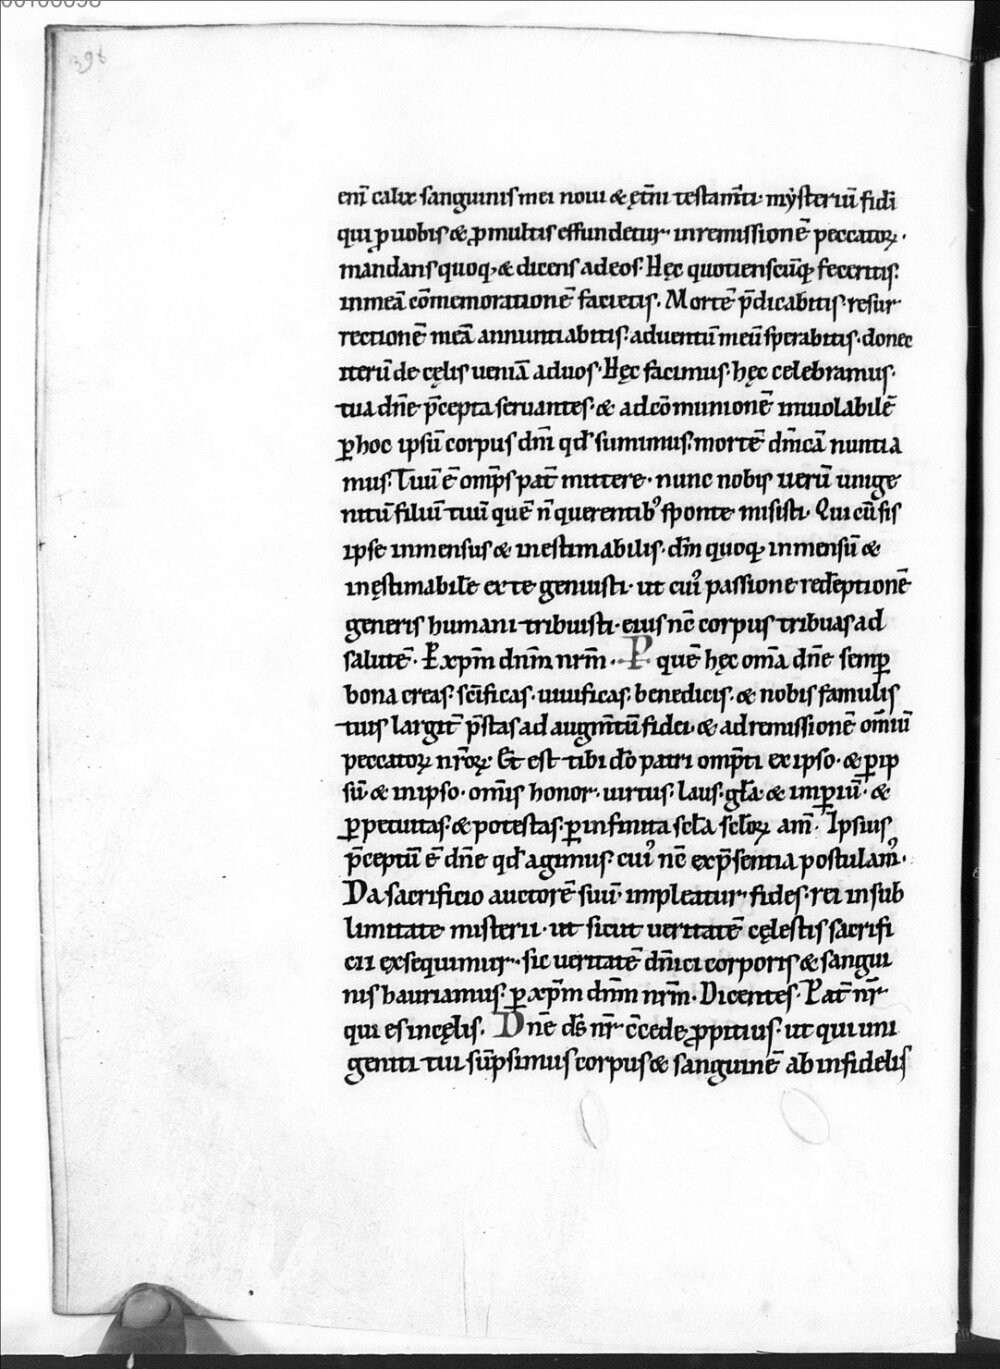 00100698
396
enī calix sanguinis mei noui & ęt̄ni testam̄ti· mẏsteriū fidi
qui ꝑ uobis & ꝓ multis effundetur· inremissionē peccatoꝝ·
mandans quoq; & dicens ad eos· Hęc quotienscūq; feceritis·
inmeā cōmemorationē facietis. Mortē p̄dicabitis· resur
rectionē meā annuntiabitis· aduentū meū sperabitis· donec
iterū de cęlis ueniā ad uos· Hęc facimus· hęc celebramus·
tua dn̄e p̄cepta seruantes· & ad cōmunionē inuolabilē
ꝑ hoc ipsū corpus dn̄i qđ sumimus· mortē dn̄icā nuntia
mus· Tuū ē omp̄s pat̄ mittere· nunc nobis uerū unige
nitū filiū tuū quē n̄ querentibꝰ sponte misisti· Qui cū sis
ipse inmensus & inestimabilis· dm̄ quoq; inmensū &
inęstimabilē ex te genuisti· ut cuiꝰ passione redēptionē
generis humani tribuisti· eius nc̄ corpus tribuas ad
salutē· P xp̄m dnm̄ nrm̄· P quē hęc om̄a dn̄e semꝑ
bona creas· sc̄ificas· uiuificas· benedicis· & nobis famulis
tuis largit̄ p̄stas ad augm̄tū fidei· & ad remissionē om̄iū
peccatoꝝ nr̄oꝝ· Et est tibi do̅ patri omp̄ti ex ipso· & ꝑ ip
sū & in ipso· om̄is honor· uirtus· laus· gl̄a & imꝑiū· &
ꝑpetuitas· & potestas· ꝑ infinita scl̄a scl̄oꝝ am̄· Ipsius
p̄ceptū ē dn̄e qđ agimus· cuiꝰ nc̄ exp̄sentia postulamꝰ·
Da sacrificio auctorē suū· impleatur fides· rei in sub
limitate misterii· ut sicut ueritatē cęlestis sacrifi
cii exsequimur· sic ueritatē dn̄ici corporis & sangui
nis hauriamus· ꝑ xp̄m dnm̄ nrm̄· Dicentes· Pat̄ nr̄
qui es in cęlis. Dn̄e ds̄ nr̄ c̄cede ꝓpitius· ut qui uni
geniti tui sūpsimus corpus & sanguinē ab infidelis